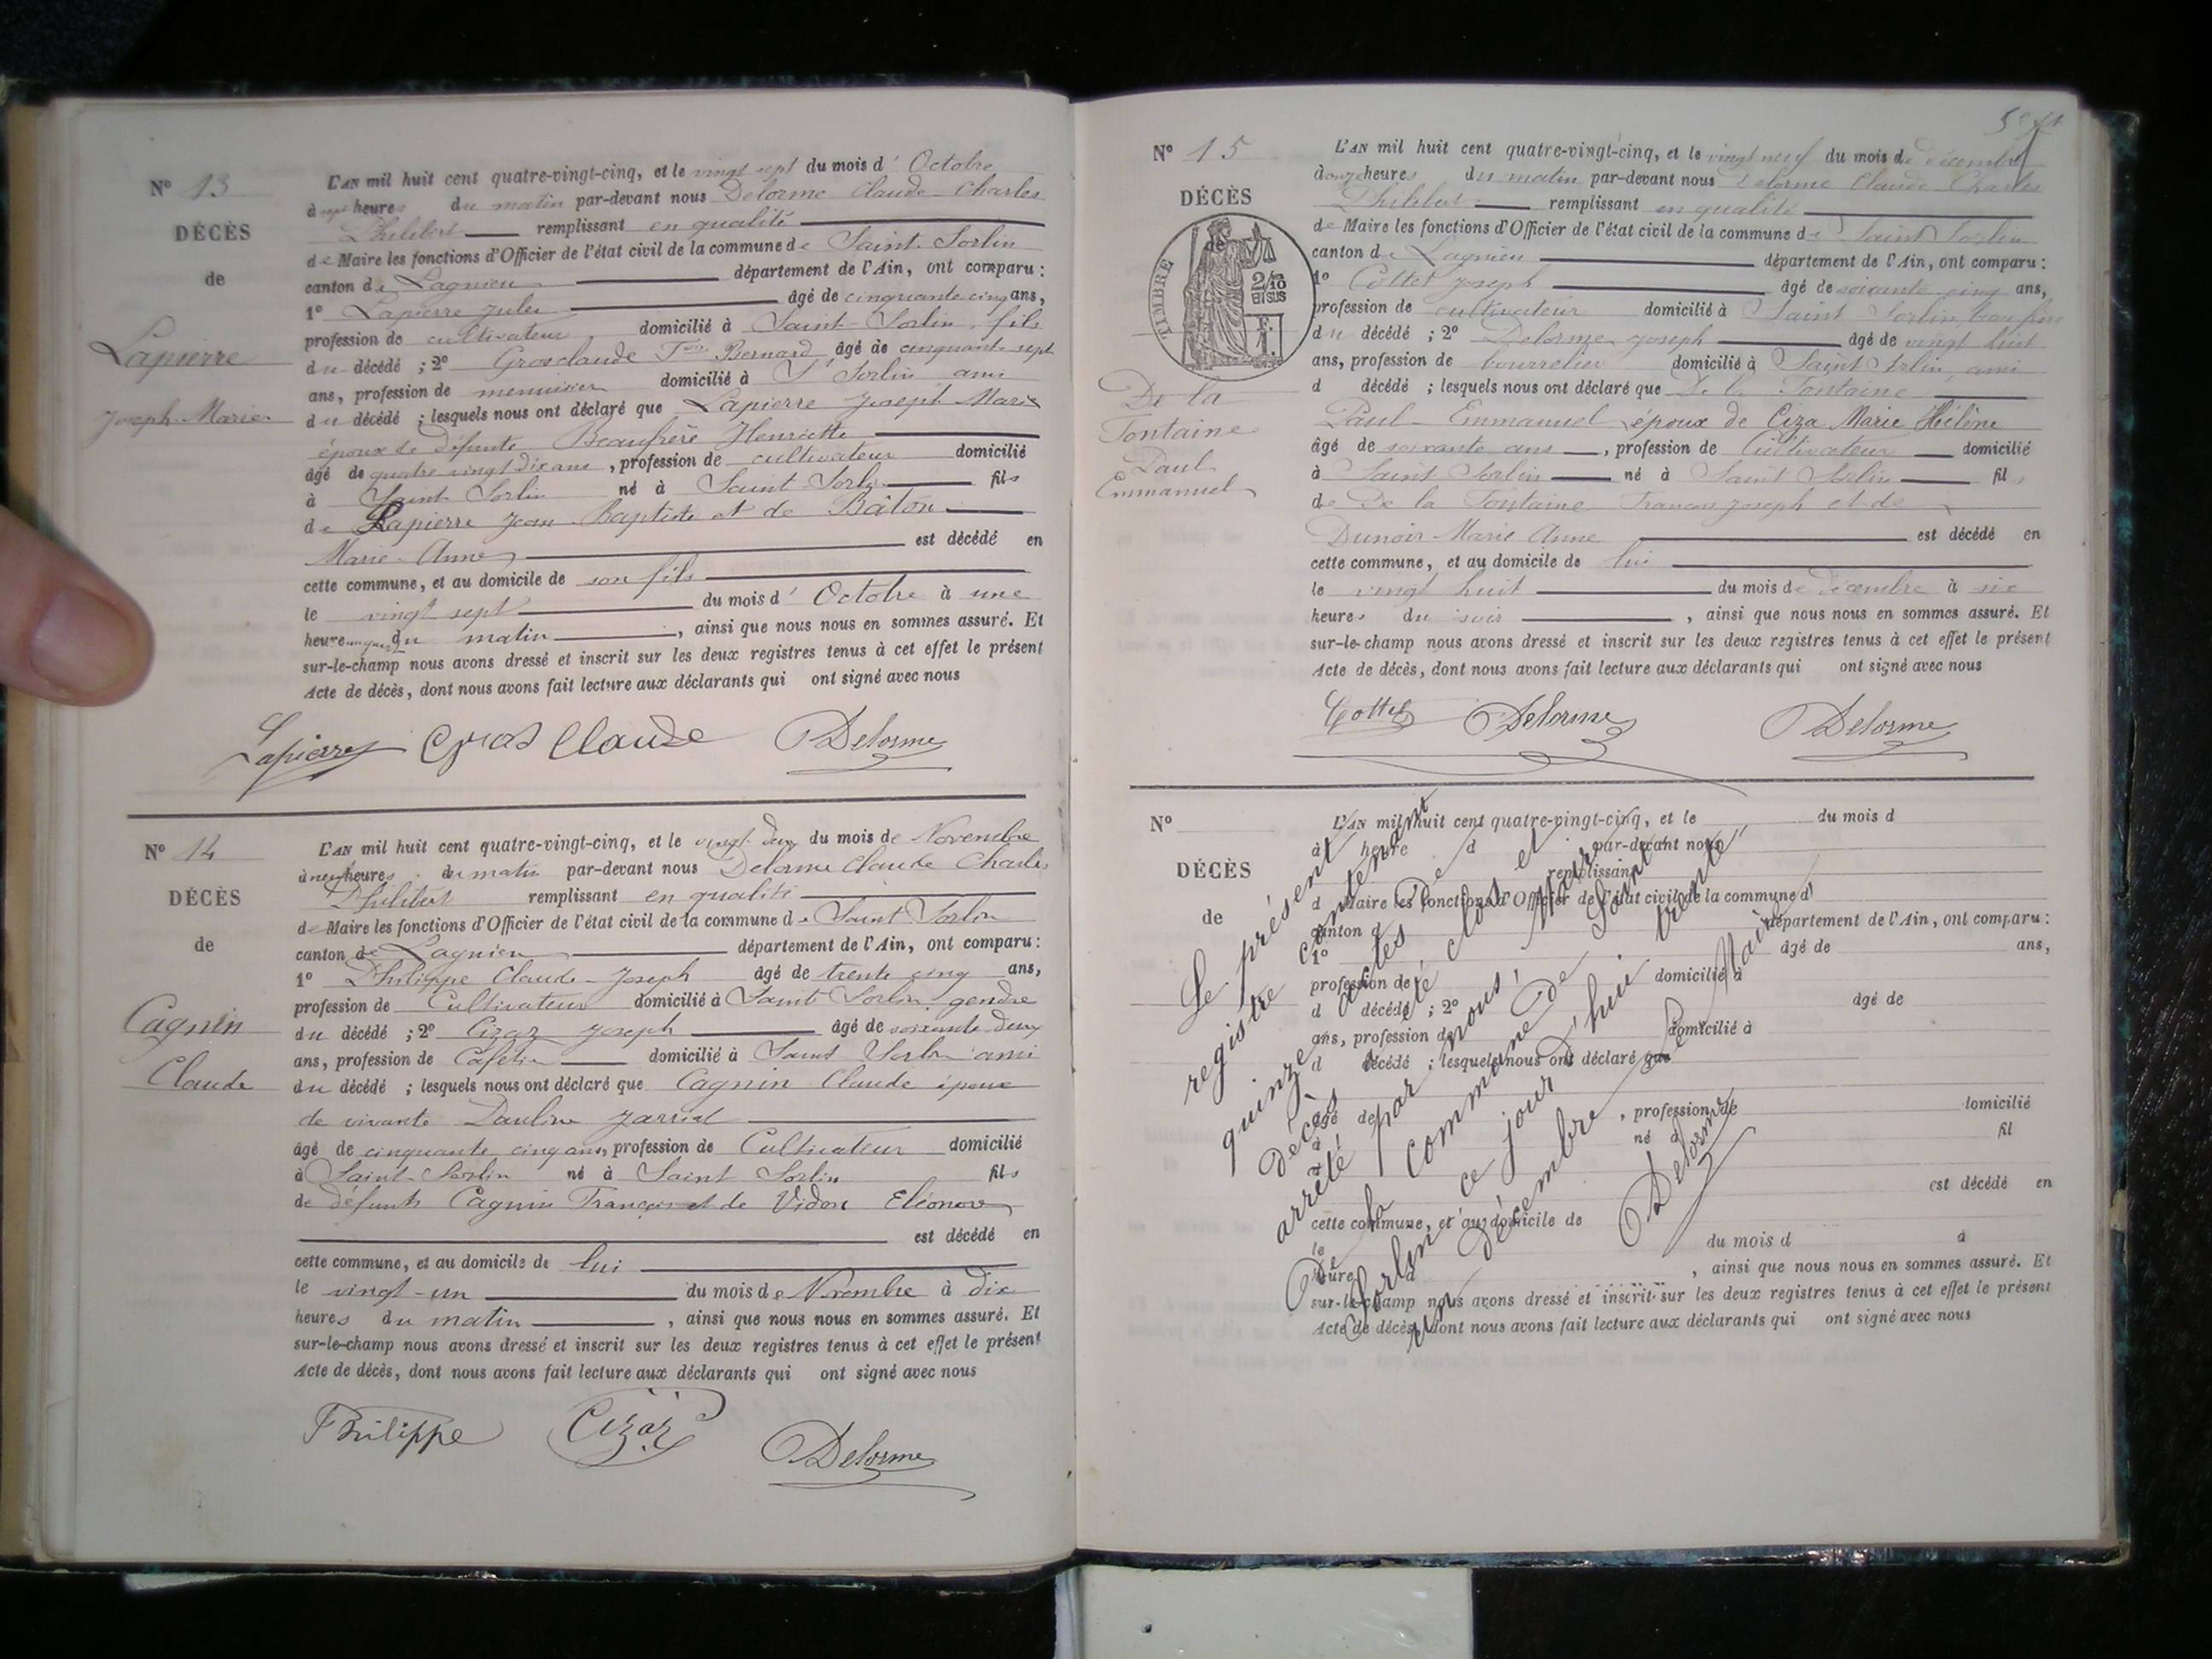 N° 13
DÉCÈS
de
Lapierre
Joseph-Marie
L'AN mil huit cent quatre-vingt-cinq, et le vingt sept du mois d' Octobre
à sept heures du matin par-devant nous Delorme Claude-Charles
Philibert remplissant en qualité
de Maire les fonctions d'Officier de l'état civil de la commune de Saint-Sorlin
canton de Lagnieu département de l'Ain, ont comparu :
1° Lapierre Jules âgé de cinquante cinq ans,
profession de cultivateur domicilié à Saint-Sorlin, fils
du décédé ; 2° Grosclaude Fois Bernard âgé de cinquante sept
ans, profession de menuisier domicilié à St Sorlin ami
du décédé ; lesquels nous ont déclaré que Lapierre Joseph Marie
époux de défunte Beaufrère Henriette
âgé de quatre vingt dix ans, profession de cultivateur domicilié
à Saint-Sorlin né à Saint Sorlin fils
de Lapierre Jean-Baptiste et de Bâton
Marie-Anne est décédé en
cette commune, et au domicile de son fils
le vingt sept du mois d' Octobre à une
heure du matin, ainsi que nous nous en sommes assuré. Et
sur-le-champ nous avons dressé et inscrit sur les deux registres tenus à cet effet le présent
Acte de décès, dont nous avons fait lecture aux déclarants qui ont signé avec nous
Lapierre Gros Claude Delorme
N° 14
DÉCÈS
de
Cagnin
Claude
L'AN mil huit cent quatre-vingt-cinq, et le vingt deux du mois de Novembre
à neuf heures du matin par-devant nous Delorme Claude Charles
Philibert remplissant en qualité
de Maire les fonctions d'Officier de l'état civil de la commune de Saint Sorlin
canton de Lagnieu département de l'Ain, ont comparu :
1° Philippe Claude-Joseph âgé de trente cinq ans,
profession de Cultivateur domicilié à Saint Sorlin gendre
du décédé ; 2° Cizaz Joseph âgé de soixante deux
ans, profession de Cafetier domicilié à Saint Sorlin ami
du décédé ; lesquels nous ont déclaré que Cagnin Claude époux
de vivante Pauline
âgé de cinquante cinq ans, profession de Cultivateur domicilié
à Saint-Sorlin né à Saint Sorlin fils
de défunts Cagnin François et de Vidon Eléonore
est décédé en
cette commune, et au domicile de lui
le vingt-un du mois de Novembre à dix
heures du matin, ainsi que nous nous en sommes assuré. Et
sur-le-champ nous avons dressé et inscrit sur les deux registres tenus à cet effet le présent
Acte de décès, dont nous avons fait lecture aux déclarants qui ont signé avec nous
Philippe Cizaz Delorme
N° 15
DÉCÈS
TIMBRE
2/10
EN SUS
F.
1.
De la
Fontaine
Paul
Emmanuel
L'AN mil huit cent quatre-vingt-cinq, et le vingt neuf du mois de décembre
à onze heures du matin par-devant nous Delorme Claude Charles
Philibert remplissant en qualité
de Maire les fonctions d'Officier de l'état civil de la commune de Saint Sorlin
canton de Lagnieu département de l'Ain, ont comparu :
1° Cottet Joseph âgé de soixante cinq ans,
profession de cultivateur domicilié à Saint Sorlin,
du décédé ; 2° Delorme Joseph âgé de vingt huit
ans, profession de bourrelier domicilié à Saint Sorlin, ami
d décédé ; lesquels nous ont déclaré que De la Fontaine
Paul-Emmanuel époux de Ciza Marie Hélène
âgé de soixante ans, profession de Cultivateur domicilié
à Saint Sorlin né à Saint Sorlin fil
de De la Fontaine François Joseph et de
Dunoir Marie Anne est décédé en
cette commune, et au domicile de lui
le vingt huit du mois de décembre à six
heures du soir, ainsi que nous nous en sommes assuré. Et
sur-le-champ nous avons dressé et inscrit sur les deux registres tenus à cet effet le présent
Acte de décès, dont nous avons fait lecture aux déclarants qui ont signé avec nous
Cottet Delorme Delorme
N°
DÉCÈS
de
L'AN mil huit cent quatre-vingt-cinq, et le du mois d
à heure d par-devant nous
remplissant
d Maire les fonctions d'Officier de l'état civil de la commune d
canton d département de l'Ain, ont comparu :
1° âgé de ans,
profession de domicilié à
d décédé ; 2° âgé de
ans, profession de domicilié à
d décédé ; lesquels nous ont déclaré que
âgé de , profession de domicilié
à né à fil
de
est décédé en
cette commune, et au domicile de
le du mois d à
heure d , ainsi que nous nous en sommes assuré. Et
sur-le-champ nous avons dressé et inscrit sur les deux registres tenus à cet effet le présent
Acte de décès, dont nous avons fait lecture aux déclarants qui ont signé avec nous
Le présent
registre contenant
quinze actes de
décès a été clos et
arrêté par nous, Maire
De la commune de Saint
Sorlin ce jour d'hui trente
un décembre
Le Maire
Delorme